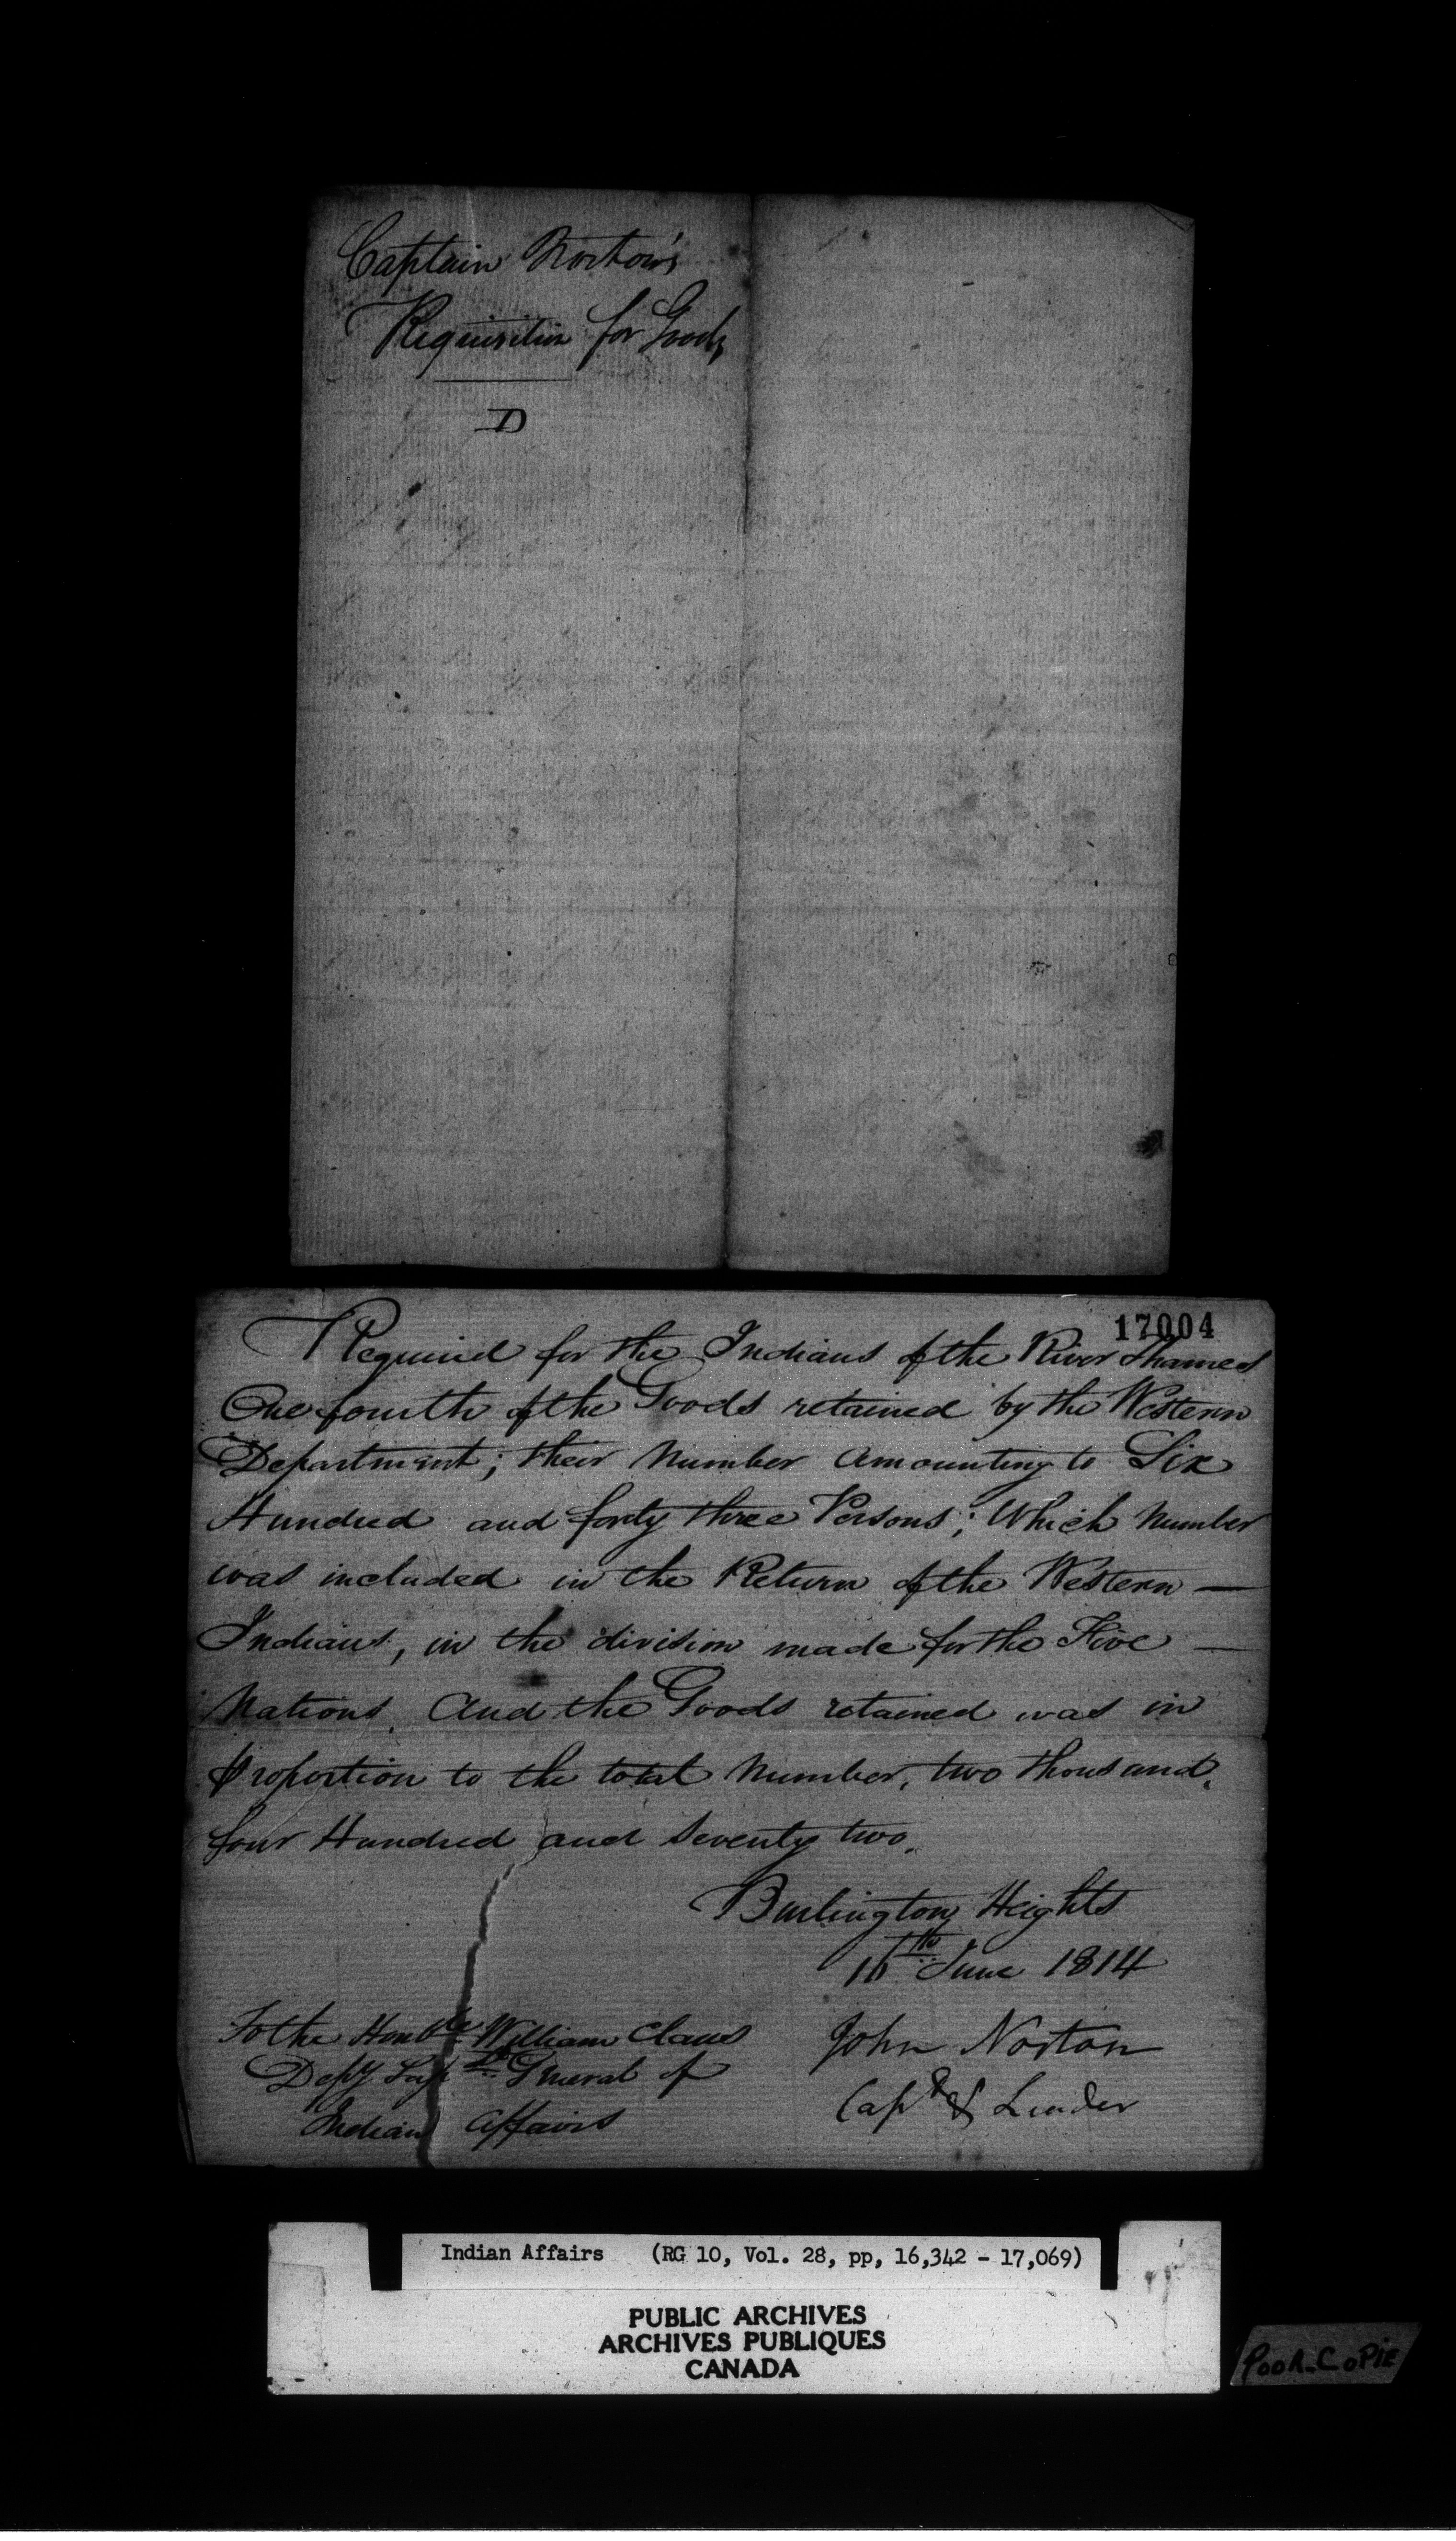 Captain Norton's
Requisition for Goods
D
17004
Required for the Indians of the River Thames
One fourth of the Goods retained by the Western
Department; their Number Amounting to Six
Hundred and forty three Persons; Which Number
was included in the Return of the Western —
Indians, in the division made for the Five —
Nations. And the Goods retained was in
Proportion to the total Number, two thousand,
four Hundred and Seventy two.
Burlington Heights
June 1814
To the Honble William Claus
Depy Supt General of
Indian Affairs
John Norton
Capt & Leader
Indian Affairs (RG 10, Vol. 28, pp, 16,342 - 17,069)
PUBLIC ARCHIVES
ARCHIVES PUBLIQUES
CANADA
POOR COPIE